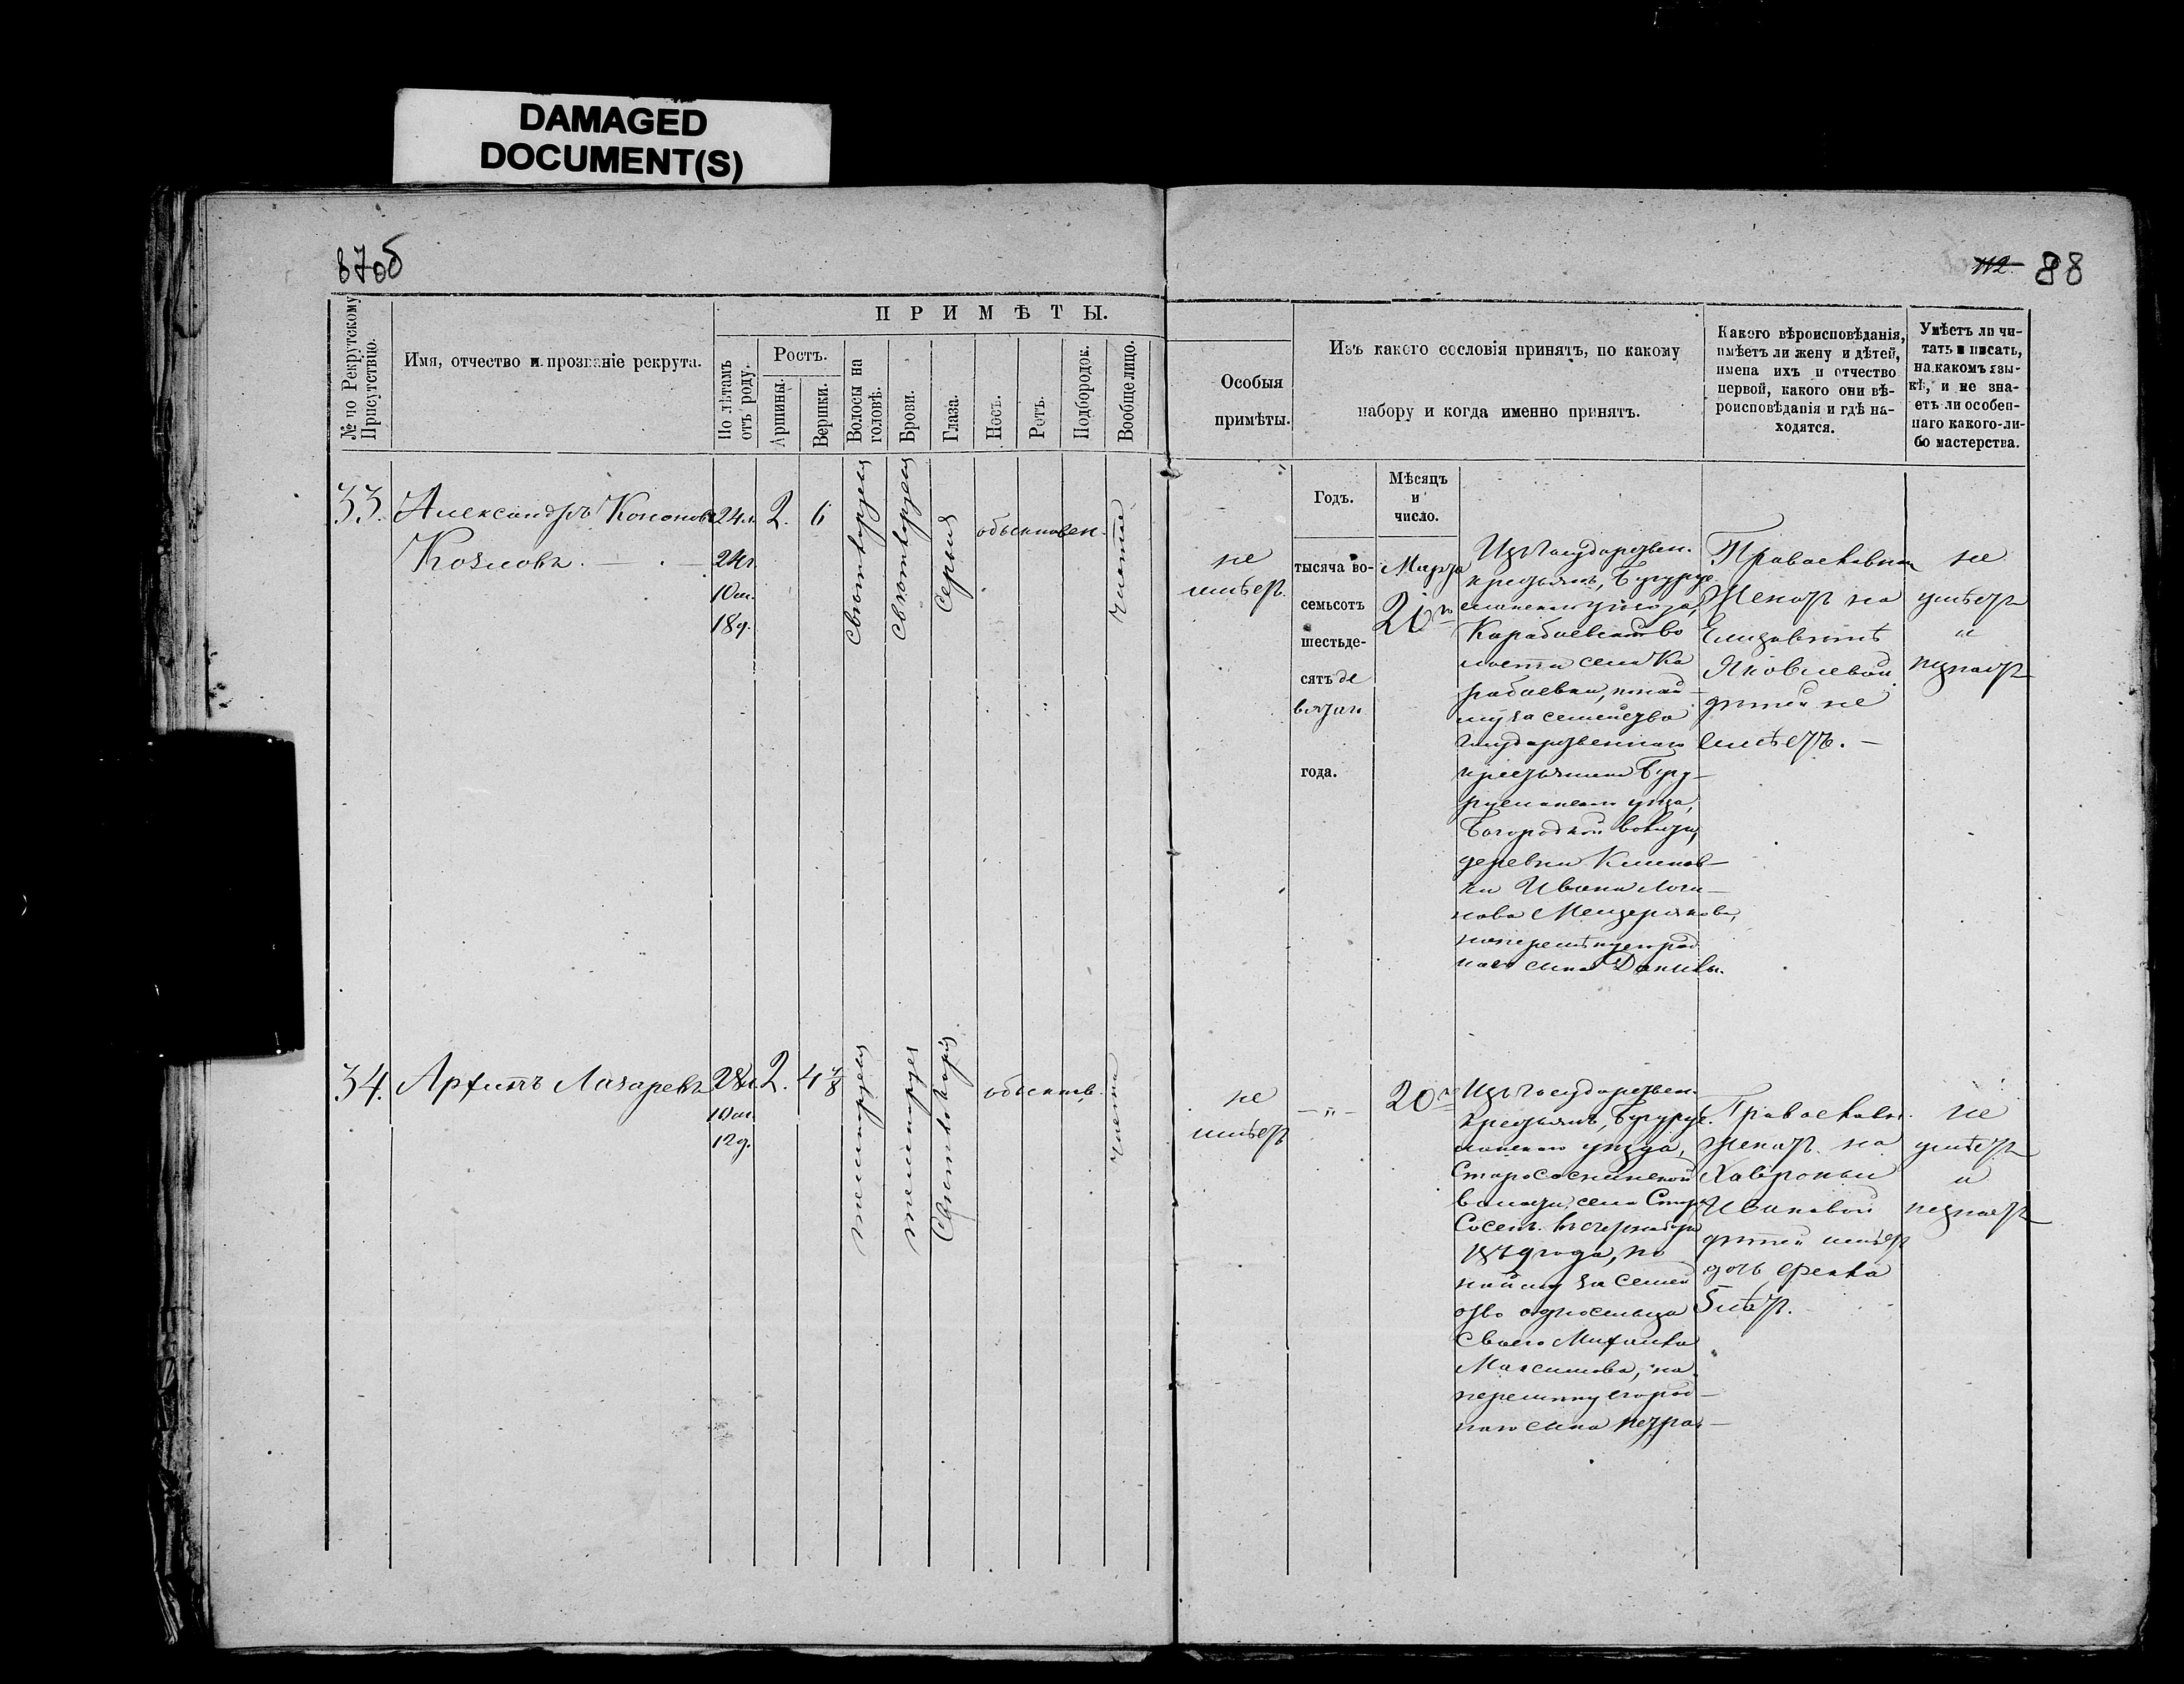 DAMAGED
DOCUMENT(S)
87об
112 88
№ по Рекрутскому
Присутствію.
Имя, отчество и прозваніе рекрута.
ПРИМѢТЫ.
По лѣтамъ
отъ роду.
Ростъ.
Аршины.
Вершки.
Волосы на
головѣ.
Брови.
Глаза.
Носъ.
Ротъ.
Подбородок.
Вообще лицо.
Особыя
примѣты.
Изъ какого сословія принятъ, по какому
набору и когда именно принятъ.
Какого вѣроисповѣданія,
имѣетъ ли жену и дѣтей,
имена ихъ и отчество
первой, какого они вѣ-
роисповѣданія и гдѣ на-
ходятся.
Умѣетъ ли чи-
тать и писать,
на какомъ язы-
кѣ, и не зна-
етъ ли особен-
наго какого-ли-
бо мастерства.
Годъ.
Мѣсяцъ
и
число.
33.
Александръ Кононовъ
Козловъ.
24л.
10м.
18д.
2.
6
свѣтлорусые
свѣтлорусыя
Серыя
обыкновен.
чистое
не
имѣетъ.
тысяча во-
семьсотъ
шестьде-
сятъ де
вятаго
года.
Марта
20го
Изъ Государствен.
крестьянъ, Бугурус
ланскаго уѣзда,
Карабаевской во
лости села Ка
рабаевки, по най
му за семейство
Государственнаго
крестьянина Бугу-
русланскаго уѣзда,
деревни
Ивана Логи-
нова Мещерякова,
на перемѣну его род
наго сына Данилы.
Православнаго
Женатъ на
Елизаветѣ
Яковлевой
дѣтей не
имѣетъ.
не
умѣетъ
и
незнаетъ
34.
Архипъ Лазаревъ
28л.
10м.
12д.
2.
4 7/8
темнорусые
темнорусыя
обыкнов.
чистое
не
имѣетъ
— „ —
20го
Изъ Государствен.
крестьянъ, Бугурус.
ланскаго уѣзда,
Старососнинской
волости, села Стар.
Сосенъ. въ счетъ набора
1869 года, по
найму за семей
ство односельца
своего Михаила
Максимова, на
перемѣну его род-
наго сына Петра.—
Православн.
женатъ на
Хавроньи
Ивановой
дѣтей имѣетъ
дочь Фекла
5 лѣтъ.
не
умѣетъ
и
незнаетъ